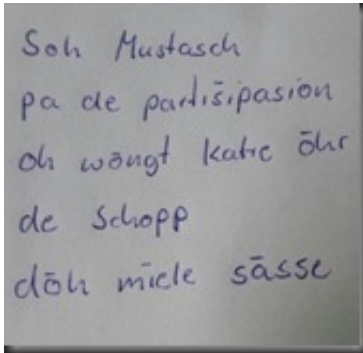 Soh Mustasch
pa de partisipasion
oh wöngt katre öhr
de Schopp
döh miele sässe